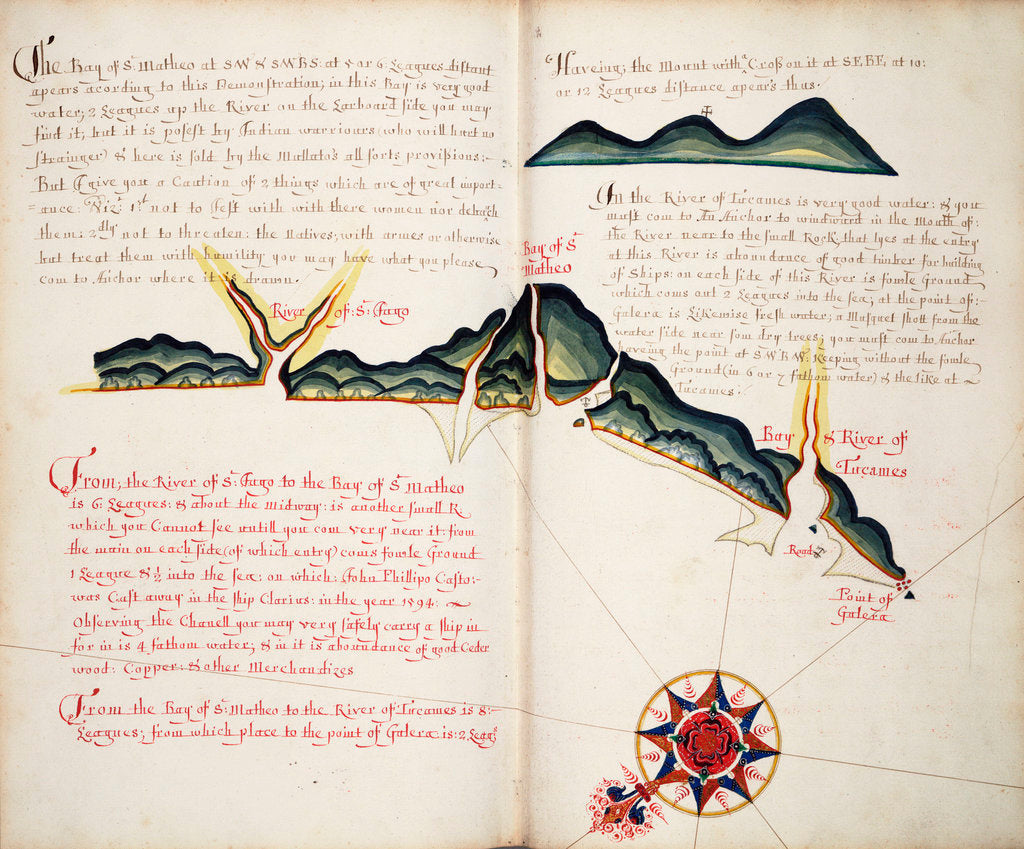 The Bay of St Matheo at SW & SWBS: at 5 or 6 Leagues distant
apears acording to this Demonstration; in this Bay is very good
water; 2 Leagues up the River on the Larboard side you may
find it; but it is posest by Indian warriours (who will hurt no
strainger) & here is sold by the Mallato's all sorts provisions:-
But I give you a Caution of 2 things which are of great import-
=ance: Vizt: 1st not to Jest with with there women nor detach
them: 2dly not to threaten: the Natives; with armes or otherwise
but treat them with humility you may have what you please
com to Anchor where it is drawn.
Haveing; the Mount with a Cross on it at SEBE, at 10:
or 12 Leagues distance apears thus.
In the River of Tucames is very good water: & you
must com to An Anchor to windward in the Mouth of:
the River near to the small Rock, that lyes at the entry
at this River is aboundance of good timber for building
of Ships: on each side of this River is fowle Ground
which coms out 2 Leagues into the sea; at the point of:-
Galera is Likewise fresh water; a Musquet shott from the
water side near som dry trees; you must com to Anchor
haveing the point at SWBW. Keeping without the fowle
Ground (in 6 or 7 fathom water) & the like at ~
Tucames:
Bay of St
Matheo
River of: St: Jago
Bay & River of
Tucames
Road
Point of
Galera
From; the River of St: Jago to the Bay of St Matheo
is 6: Leagues: & about the midway: is another small R.
which you Cannot see untill you com very near it: from
the main on each side (of which entry) coms fowle Ground
1 League & ½ into the sea: on which: John Phillipo Casto:-
was Cast away in the ship Clarius: in the year 1594: ~
Observing the Chanell you may very safely carry a ship in
for in is 4 fathom water; & in it is aboundance of good Ceder
wood: Copper: & other Merchandizes
From the Bay of St: Matheo to the River of Tucames is 8:-
Leagues; from which place to the point of Galera is: 2 Leags